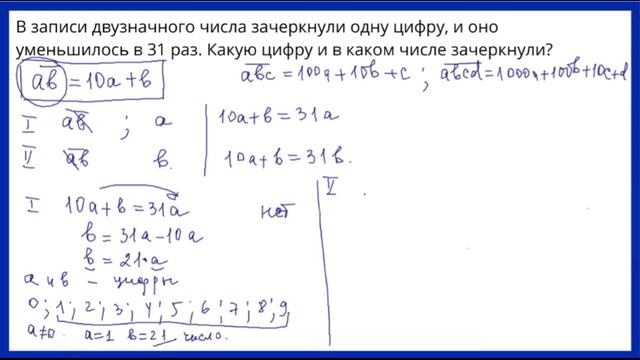 В записи двузначного числа зачеркнули одну цифру, и оно
уменьшилось в 31 раз. Какую цифру и в каком числе зачеркнули?
ab = 10a + b
abc = 100a + 10b + c ; abcd = 1000a + 100b + 10c + d
I ab ; a 10a + b = 31a
II ab b. 10a + b = 31b.
I 10a + b = 31a нет
b = 31a - 10a
b = 21·a
a и b - цифры
0; 1; 2; 3; 4; 5; 6; 7; 8; 9
a≠0. a=1 b=21 число.
II .